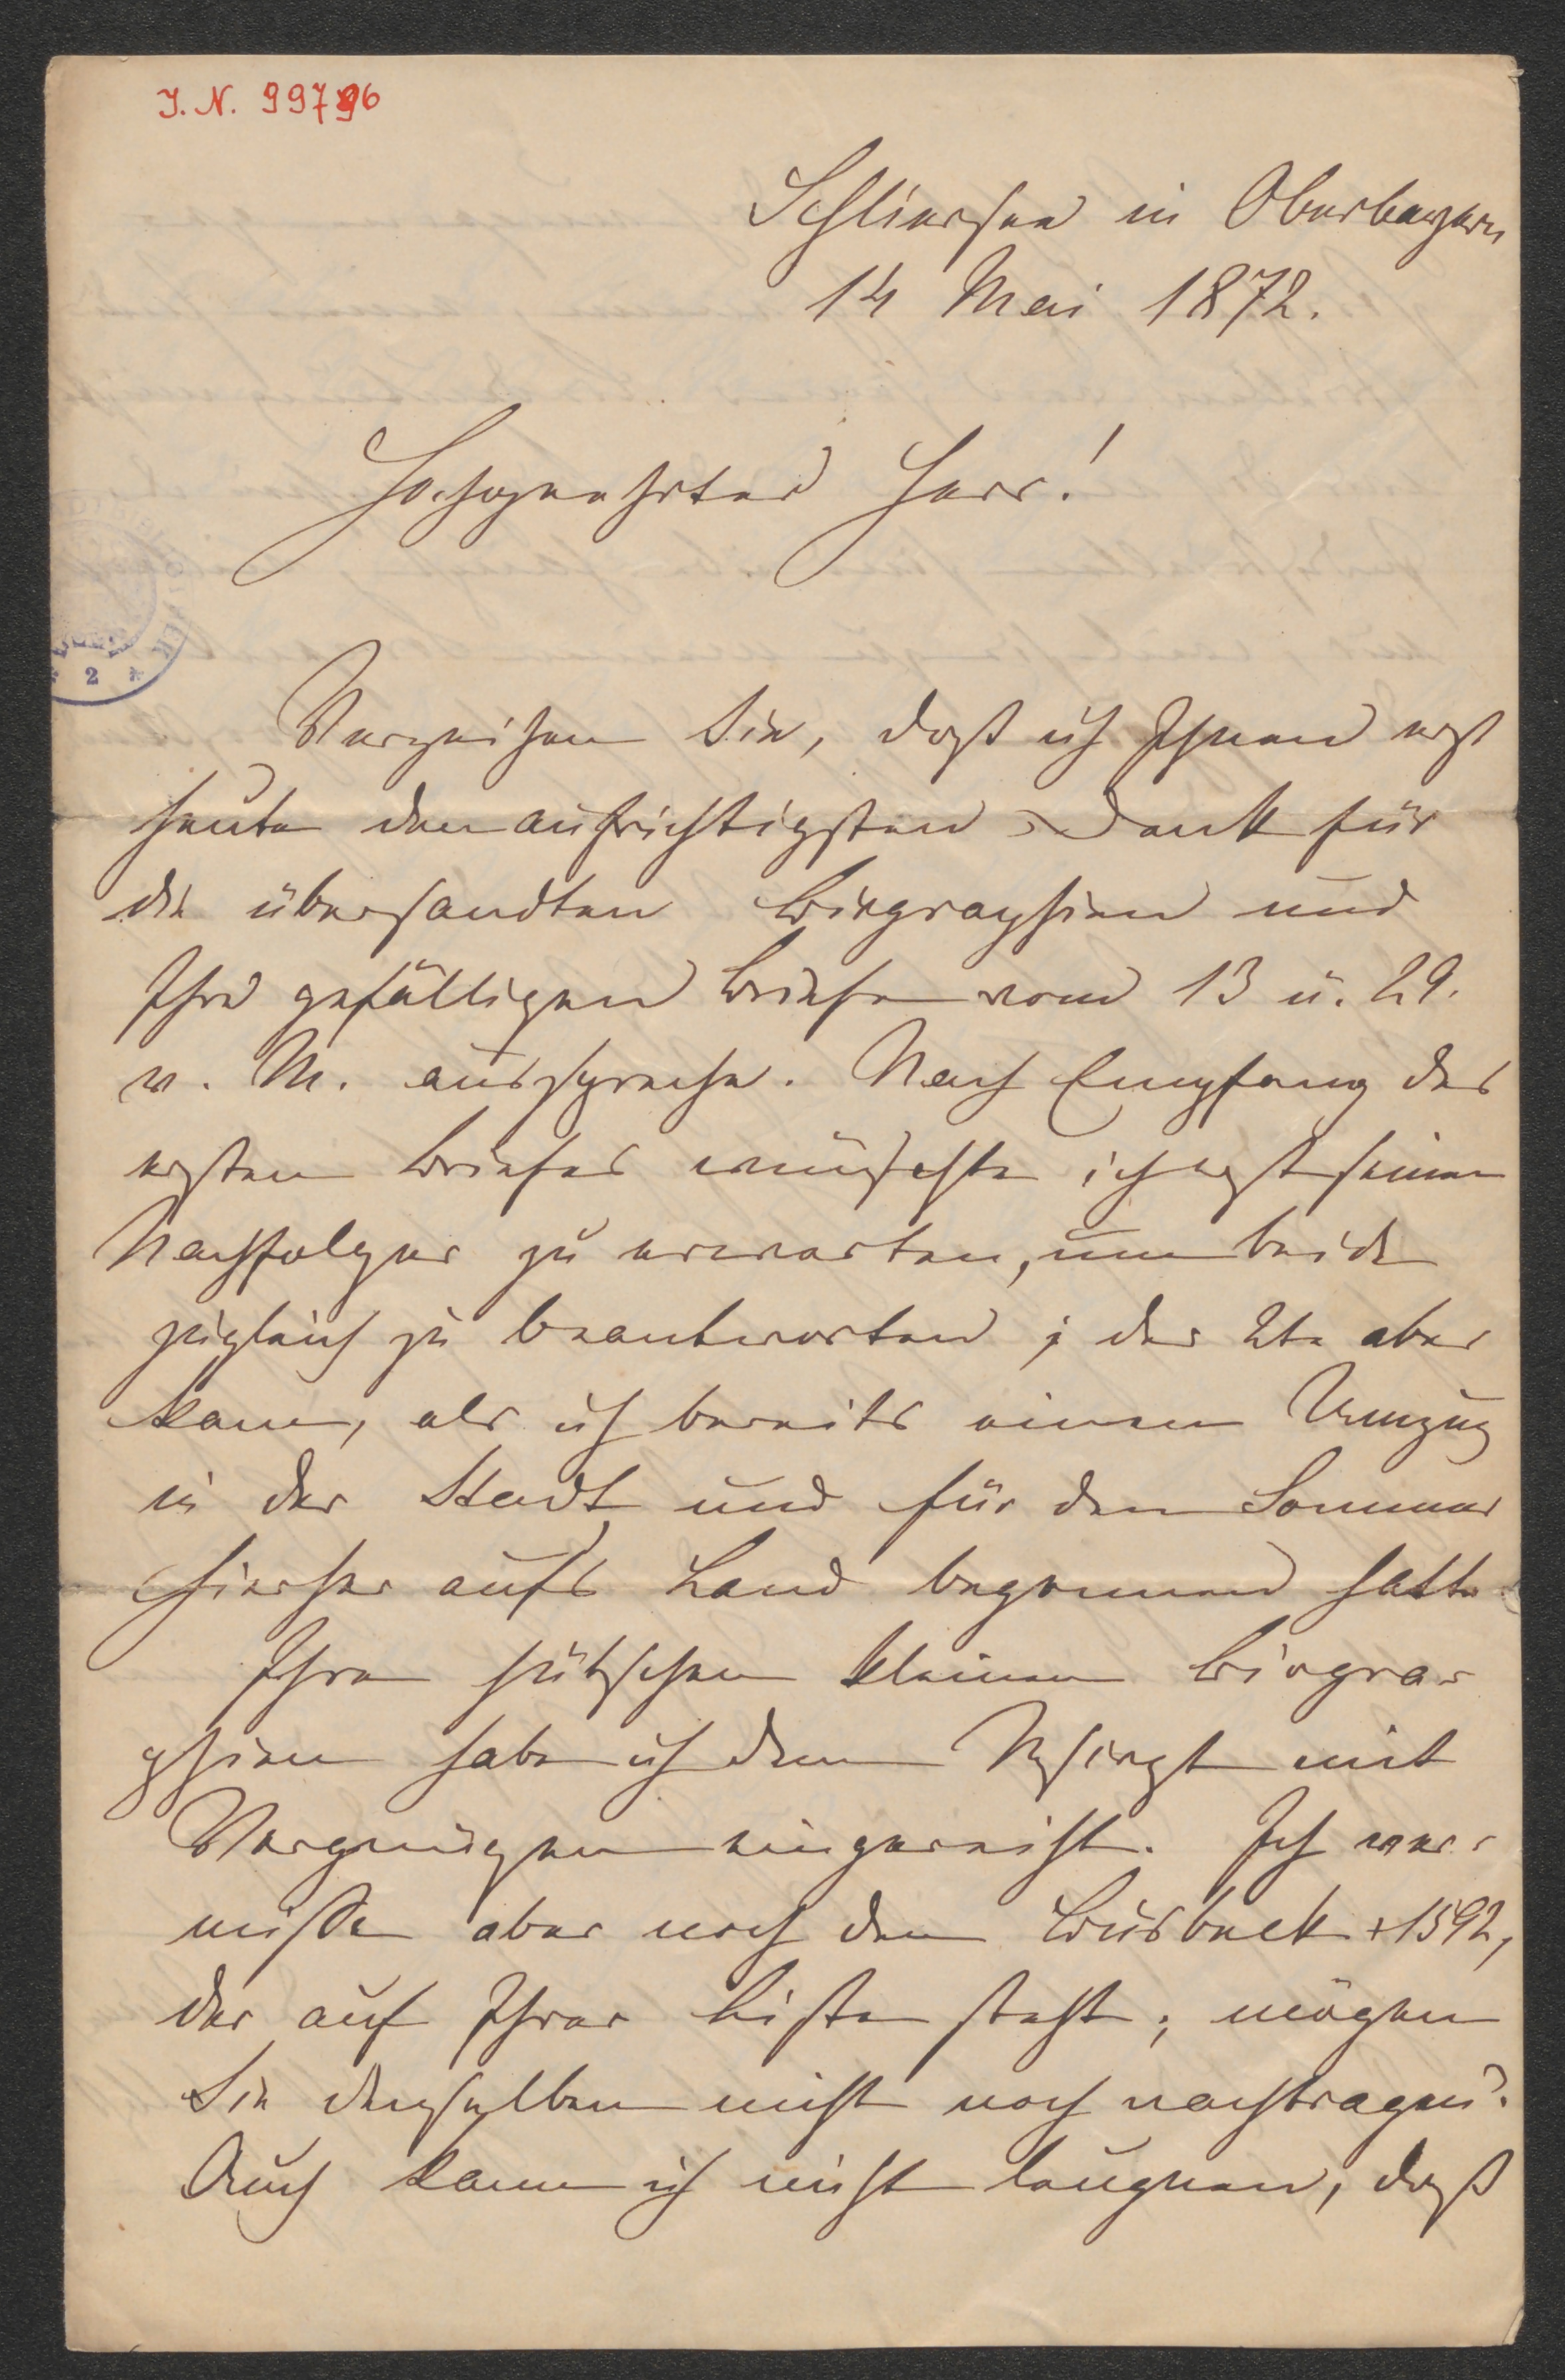 I. N. 99796
Schliersee in Oberbayern
14 Mai 1872.
Hochgeehrter Herr!
Verzeihen Sie, daß ich Ihnen erst
heute den aufrichtigsten Dank für
die übersandten Biographien und
Ihre gefälligen Briefe vom 13 u. 29.
v. M. ausspreche. Nach Empfang des
ersten Briefes wünschte ich erst seinen
Nachfolger zu erwarten, um beide
zugleich zu beantworten; der 2te aber
kam, als ich bereits einen Umzug
in der Stadt und für den Sommer
hierher aufs Land begonnen hatte
Ihre hübschen kleinen Biogra-
phien habe ich dem Mscript mit
Vergnügen eingereiht. Ich ver-
misse aber noch den Busbeck +1592,
der auf Ihrer Liste steht; mögen
Sie denselben nicht noch nachtragen?
Auch kann ich nicht läugnen, daß
2